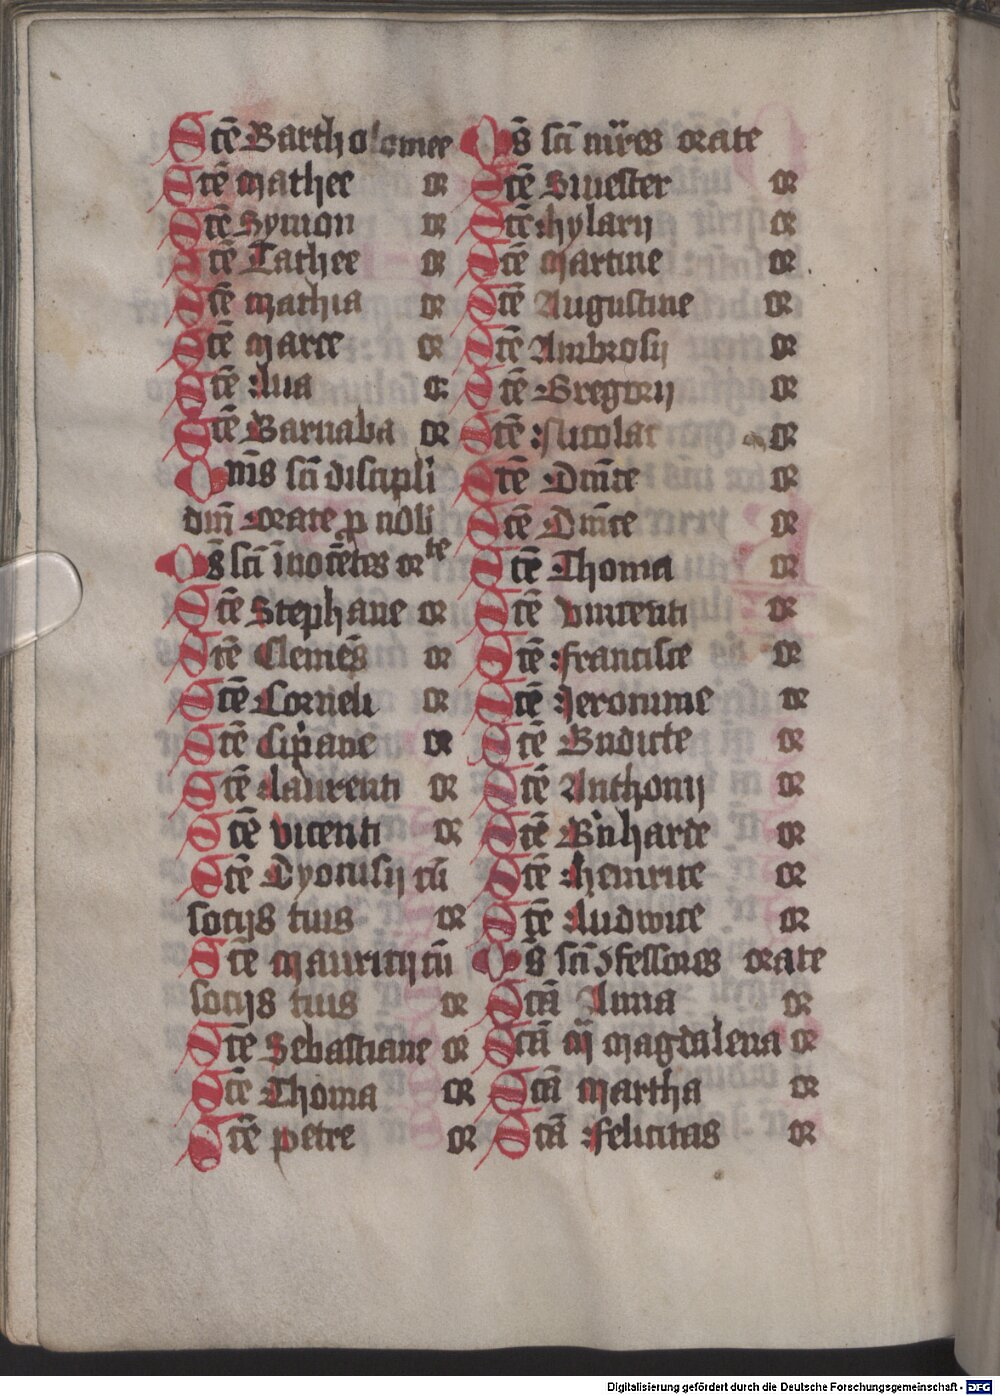 Scē Bartholomee
Scē Mathee or
Scē Symon or
Scē Tathee or
Scē Mathia or
Scē Marce or
Scē Luca or
Scē Barnaba or
Om̄s scī discipli
dn̄i Orate p nobi
Os̄ scī īnocētes orte
Scē Stephane or
Scē Clemēs or
Scē Corneli or
Scē Cipane or
Scē Laurenti or
Scē vicenti or
Scē Dyonisij cū
socijs tuis or
Scē Mauricij cū
socijs tuis or
Scē Sebastiane or
Scē Thoma or
Scē Petre or
Os̄ scī mr̄es orate
Scē Siluester or
Scē hylarij or
Scē Martine or
Scē Augustine or
Scē Ambrosij or
Scē Gregorij or
Scē Nicolae or
Scē Dm̄ce or
Scē Dm̄ce or
Scē Thoma or
Scē vincenti or
Scē Francisce or
Scē Jeronime or
Scē Bndicte or
Scē Anthonij or
Scē Bn̄harde or
Scē Heinrice or
Scē Ludwice or
Os̄ scī ↄfessores orate
Scā Anna or
Scā Mͣ magdalena or
Scā Martha or
Scā Felicitas or
Digitalisierung gefördert durch die Deutsche Forschungsgemeinschaft - DFG